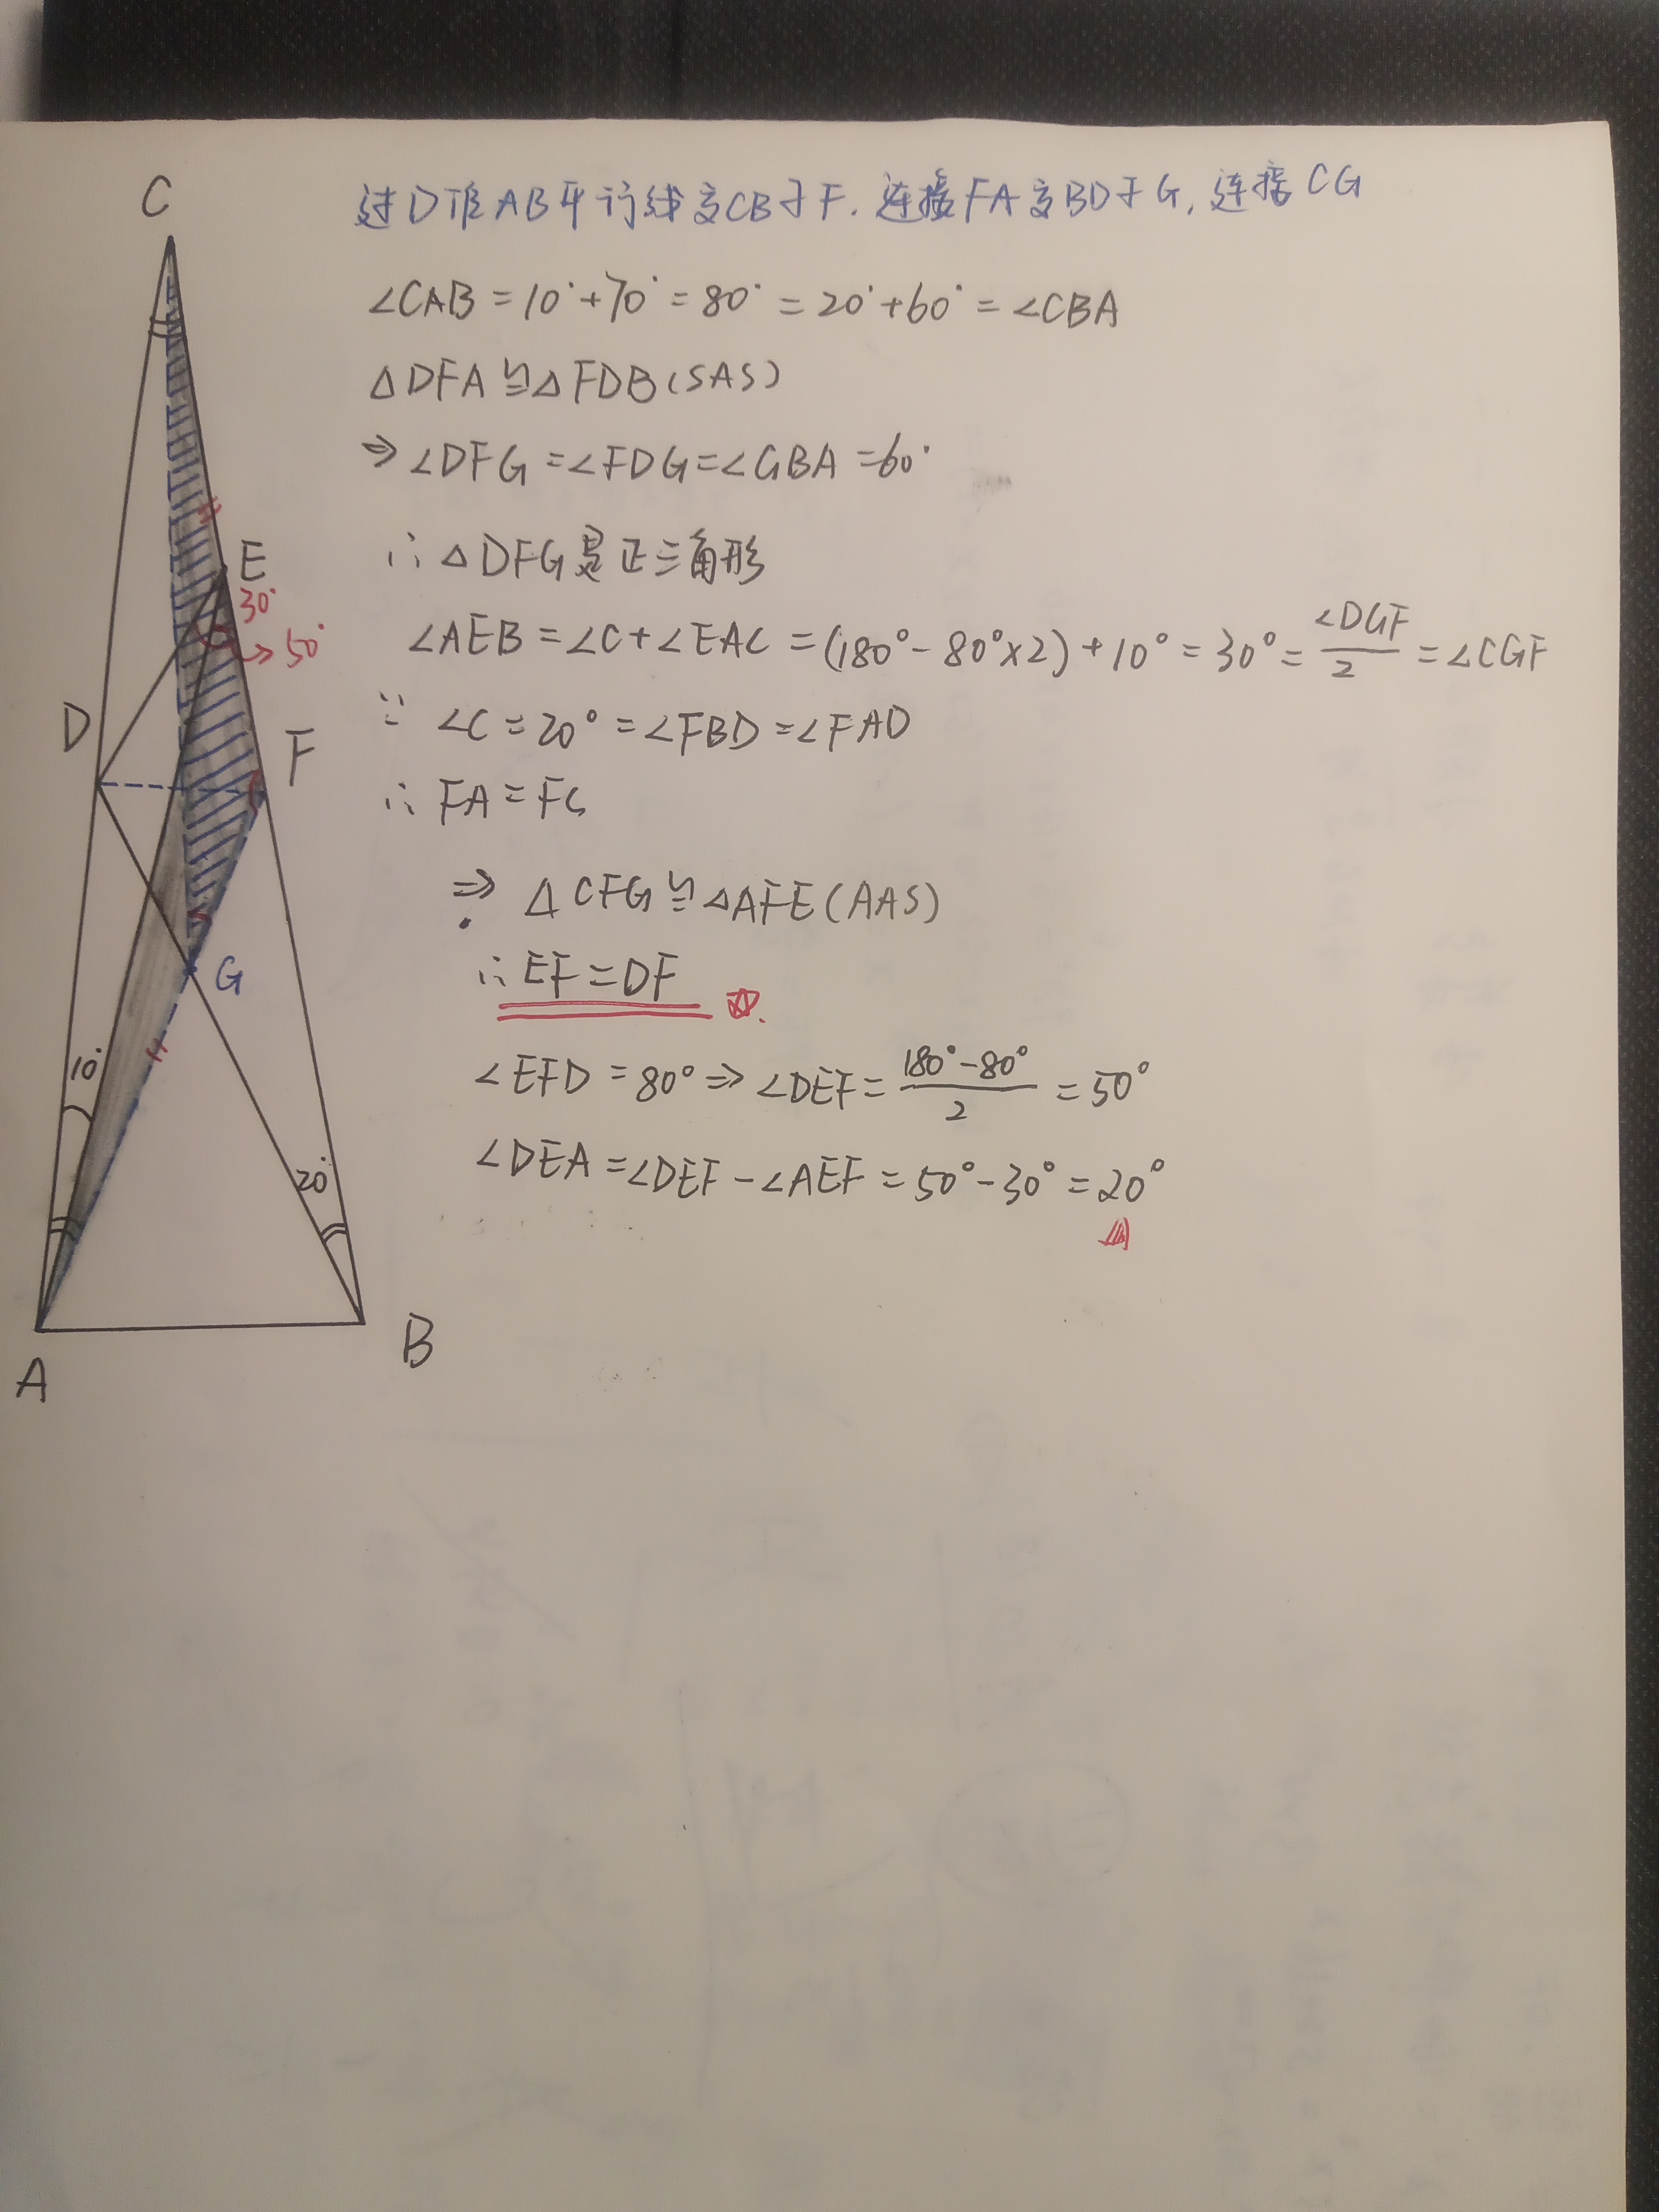 过D作AB平行线交CB于F. 连接FA交BD于G, 连接CG
∠CAB = 10°+70° = 80° = 20°+60° = ∠CBA
△DFA ≌ △FDB (SAS)
⇒ ∠DFG = ∠FDG = ∠GBA = 60°
∴ △DFG是正三角形
∠AEB = ∠C + ∠EAC = (180° - 80°×2) + 10° = 30° = ∠DGF/2 = ∠CGF
∵ ∠C = 20° = ∠FBD = ∠FAD
∴ FA = FC
⇒ △CFG ≌ △AFE (AAS)
∴ EF = DF
∠EFD = 80° ⇒ ∠DEF = (180° - 80°)/2 = 50°
∠DEA = ∠DEF - ∠AEF = 50° - 30° = 20°
C
E
30°
50°
D
F
G
10°
20°
A
B